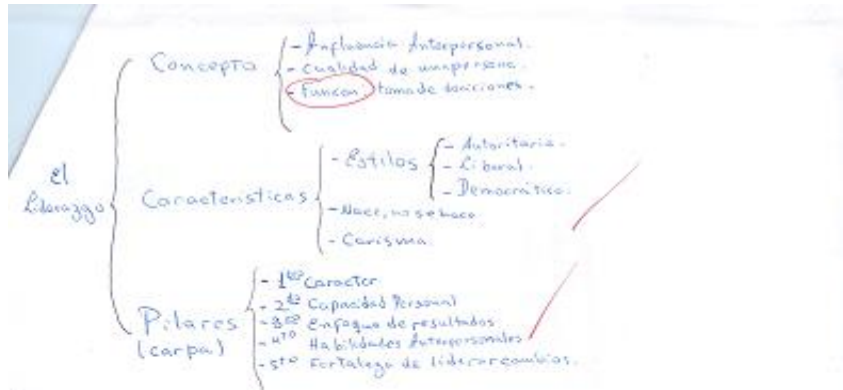 Concepto
- Influencia Interpersonal.
- Cualidad de una persona.
- Funcion: toma de deciciones.
El
Liderazgo
Caracteristicas
- Estilos
- Autoritario.
- Liberal.
- Democrático.
- Nace, no se hace.
- Carisma.
Pilares
(carpa)
- 1er Caracter
- 2do Capacidad Personal
- 3er Enfoque de resultados
- 4to Habilidades Interpersonales
- 5to Fortaleza de liderar cambios.